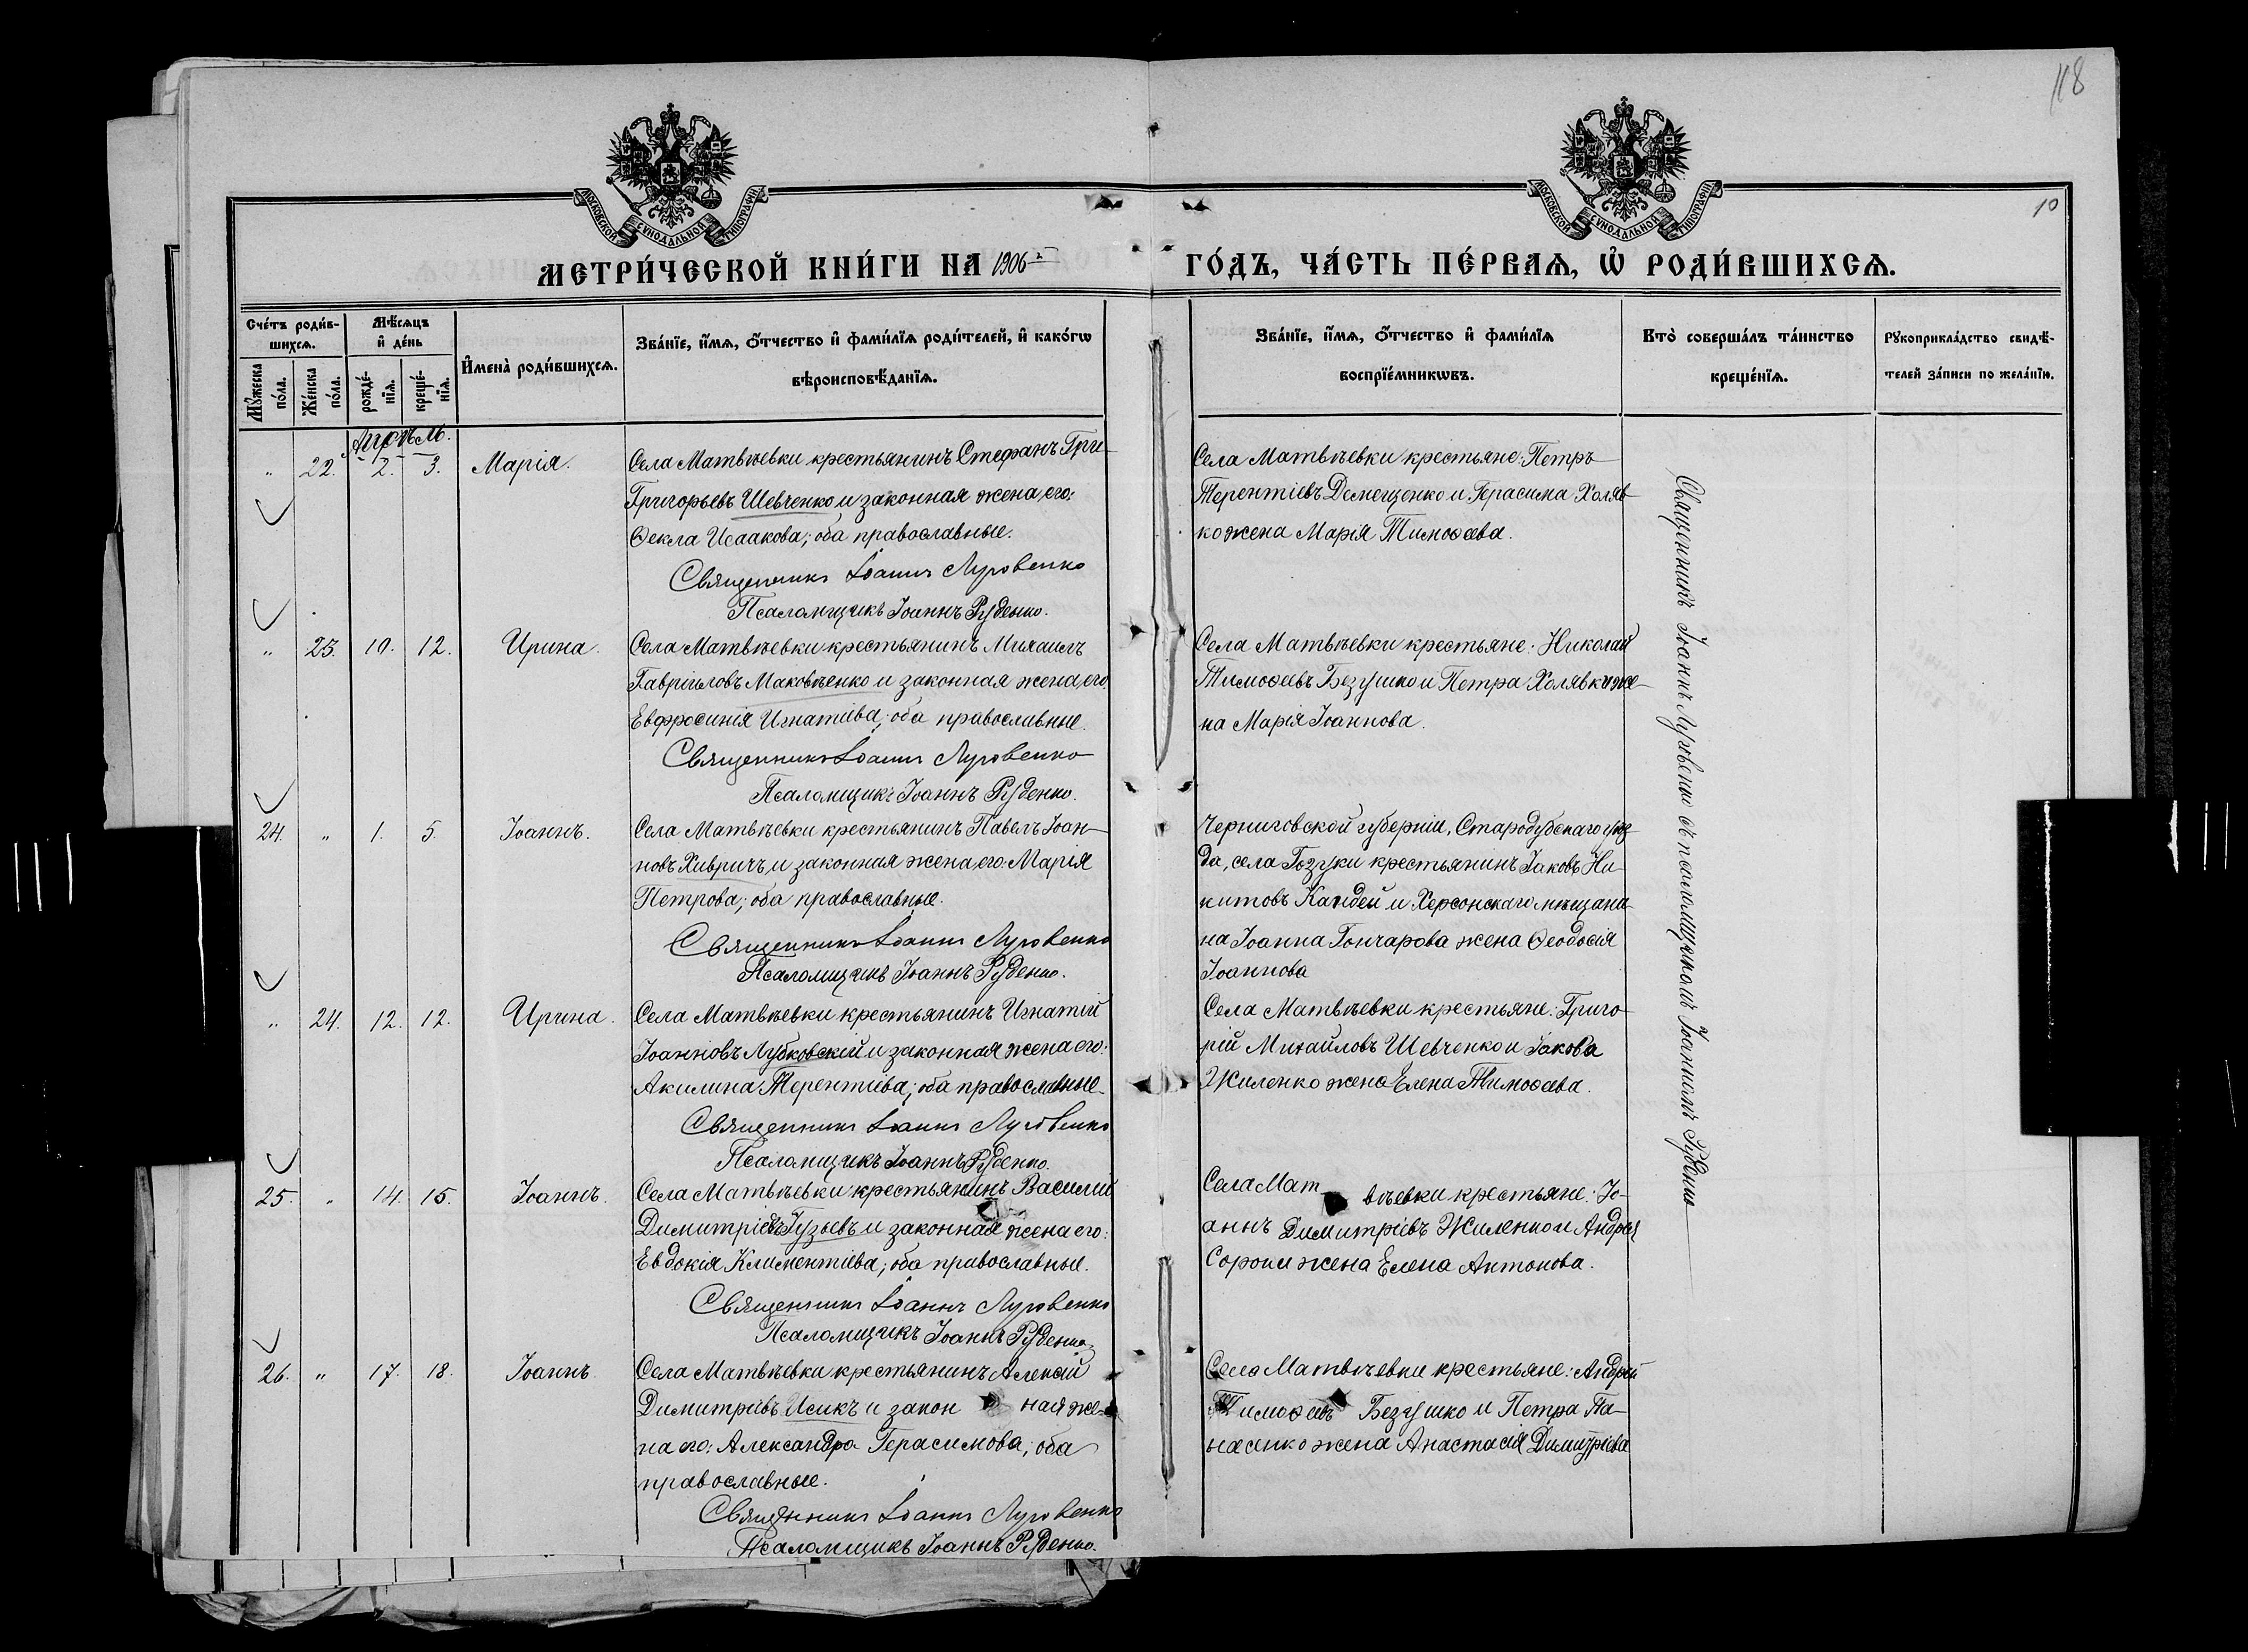 118
10
МОСКОВСКОЙ СѴНОДАЛЬНОЙ ТИПОГРАФІИ
МОСКОВСКОЙ СѴНОДАЛЬНОЙ ТИПОГРАФІИ
МЕТРИ́ЧЕСКОЙ КНИ́ГИ НА 1906 ГО́ДЪ, ЧА́СТЬ ПЕ́РВАѦ, Ѡ҆ РОДИ́ВШИХСѦ.
Сче́тъ роди́в-
шихсѧ.
Мꙋ́жеска по́ла.
Же́нска по́ла.
Мѣ́сѧцъ
и҆ де́нь
рожде́-
нїѧ.
креще́-
нїѧ.
И҆мена̀ роди́вшихсѧ.
Зва́нїе, и҆́мѧ, ѻ҆́тчество и҆ фами́лїѧ роди́телей, и҆ како́гѡ
вѣроисповѣ́данїѧ.
Зва́нїе, и҆́мѧ, ѻ҆́тчество и҆ фами́лїѧ
воспрїе́мникѡвъ.
Кто̀ соверша́лъ та́инство
креще́нїѧ.
Рꙋкоприкла́дство свидѣ́-
телей за́писи по жела́нїю.
Апрѣль.
" 22. 2. 3. Марія.
Села Матвѣевки крестьянинъ Стефанъ Гри-
Григорьевъ Шевченко и законная жена его:
Ѳекла Исаакова; оба православные.
Священникъ Іоаннъ Луговенко
Псаломщикъ Іоаннъ Руденко.
Села Матвѣевки крестьяне: Петръ
Терентіевъ Демещенко и Герасима Холяв-
ко жена Марія Тимоѳеева.
" 23. 10. 12. Ирина.
Села Матвѣевки крестьянинъ Михаилъ
Гавріиловъ Маковѣенко и законная жена его
Евфросинія Игнатіева; оба православные.
Священникъ Іоаннъ Луговенко
Псаломщикъ Іоаннъ Руденко.
Села Матвѣевки крестьяне: Николай
Тимоѳеевъ Безушко и Петра Холявки же-
на Марія Іоаннова.
24. " 1. 5. Іоаннъ.
Села Матвѣевки крестьянинъ Павелъ Іоан-
новъ Хивричъ и законная жена его: Марія
Петрова; оба православные.
Священникъ Іоаннъ Луговенко
Псаломщикъ Іоаннъ Руденко.
Черниговской губерніи, Стародубскаго уѣз-
да, села крестьянинъ Іаковъ Ни-
китовъ и Херсонскаго мѣщани-
на Іоанна Гончарова жена Ѳеодосія
Іоаннова
" 24. 12. 12. Ирина.
Села Матвѣевки крестьянинъ Игнатій
Іоанновъ Лубковскій и законная жена его:
Акилина Терентіева; оба православные
Священникъ Іоаннъ Луговенко
Псаломщикъ Іоаннъ Руденко.
Села Матвѣевки крестьяне: Григо-
рій Михайловъ Шевченко и Іакова
Жиленко жена Елена Тимоѳеева.
25. " 14. 15. Іоаннъ.
Села Матвѣевки крестьянинъ Василій
Димитріевъ Гузьевъ и законная жена его:
Евдокія Климентіева; оба православные.
Священникъ Іоаннъ Луговенко
Псаломщикъ Іоаннъ Руденко
Села Мат вѣевки крестьяне: Іо-
аннъ Димитріевъ Жиленко и Андрея
Сороки жена Елена Антонова.
26. " 17. 18. Іоаннъ.
Села Матвѣевки крестьянинъ Алексій
Димитріевъ Исикъ и закон ная же-
на его: Александра Герасимова; оба
православные.
Священникъ Іоаннъ Луговенко
Псаломщикъ Іоаннъ Руденко.
Села Матвѣевки крестьяне: Андрей
Тимоѳеевъ Безушко и Петра Па-
насенко жена Анастасія Димитріева
Священникъ Іоаннъ Луговенко съ псаломщикомъ Іоанномъ Руденко